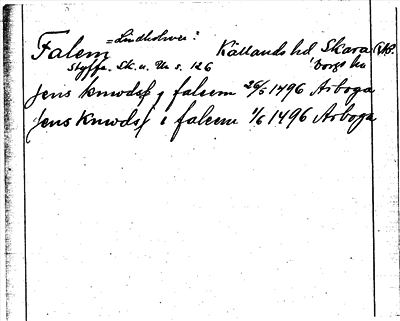 Falem =Lindholmen? Källands hd Skara
Styffe. Sk. u. Un s. 126 borgs län
Jens knwdsß j falem 26/5 1496 Arboga
Jens Knwdsß i falem 1/6 1496 Arboga